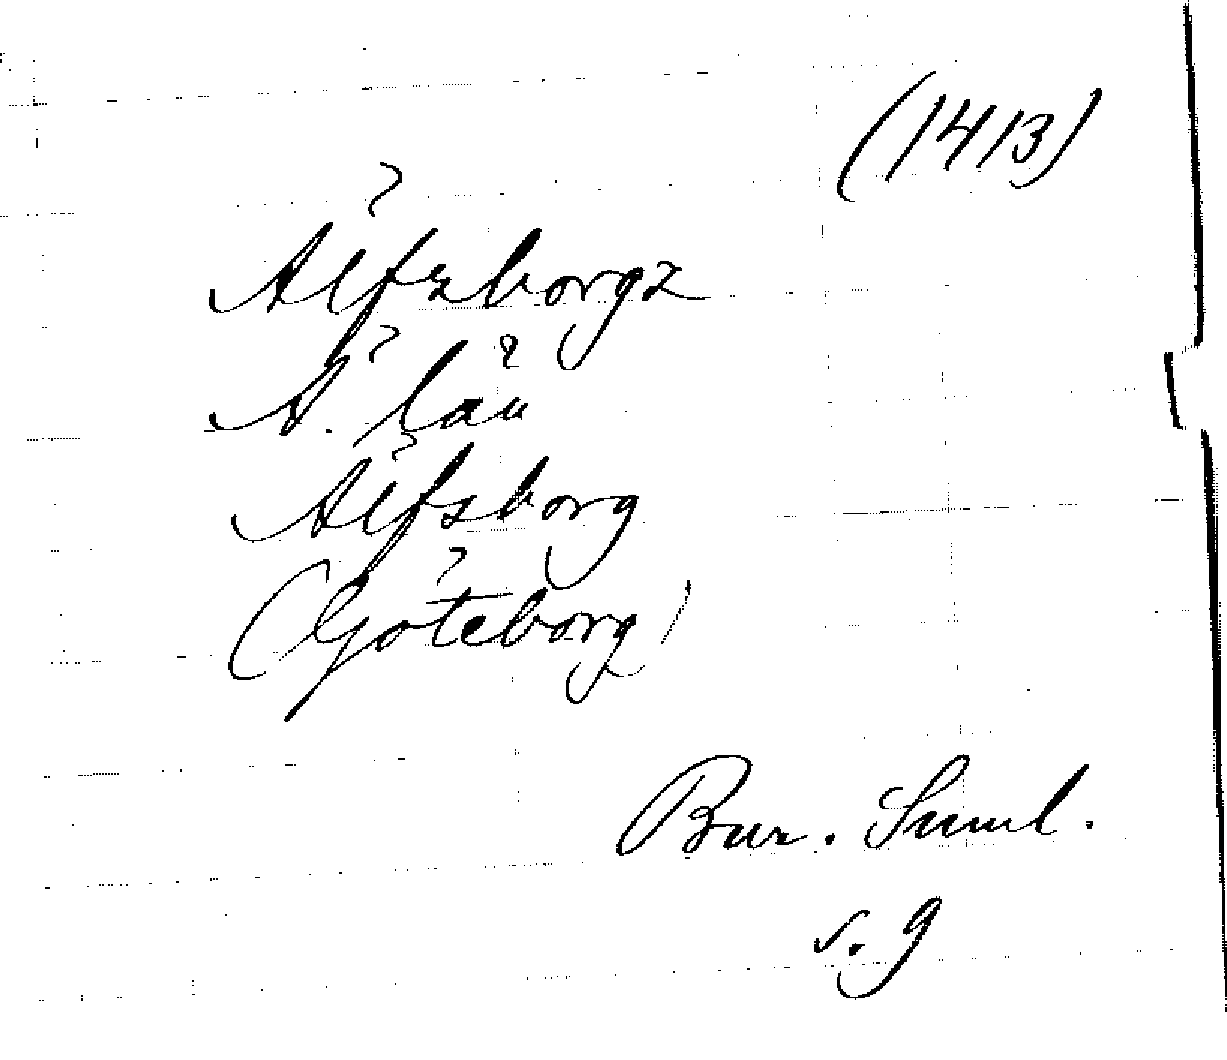 (1413)
Älfzborgz
Ä. län
Älfsborg
(Göteborg)
Bur. Saml.
s. 9